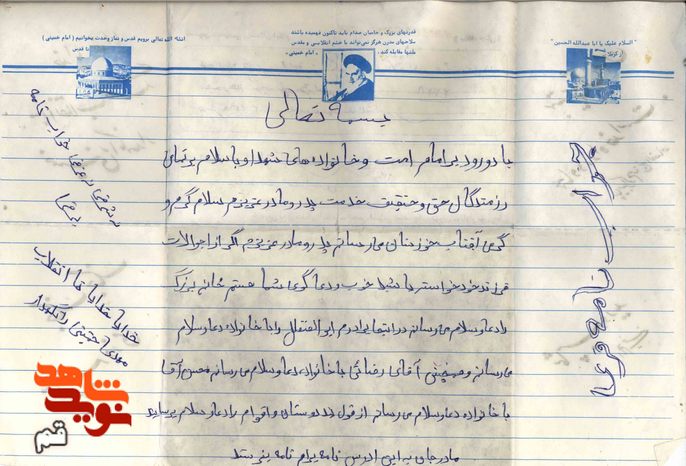 انشاء الله تعالی برویم قدس و نماز وحدت بخوانیم ( امام خمینی )
تا قدس
قدرتهای بزرگ و حامیان صدام باید تاکنون فهمیده باشند
سلاحهای مدرن هرگز نمی‌تواند با خشم انقلابی و مقدس
ملتها مقابله کند . « امام خمینی »
" السلام علیک یا ابا عبدالله الحسین "
از کربلا
بسمه تعالی
با درود بر امام امت و خانواده های شهدا و با سلام بر تمامی
رزمندگان حق و حقیقت خدمت پدر و مادر عزیزم سلام گرم و
گرمی آفتاب خوزستان می رسانم پدر و مادر عزیزم اگر از احوالات
فرزند خود خواسته باشید خوب و دعاگوی شما هستم خاله بزرگ
را دعا و سلام می رسانم در اینجا برادرم ابوالفضل را با خانواده دعا و سلام
می رسانم و همچنین آقای رضائی با خانواده دعا و سلام می رسانم محسن آقا
با خانواده دعا و سلام می رسانم از قول بنده دوستان و اقوام را دعا و سلام برسانید
مادر جان به این ادرس نامه برایم نامه بنویسید
جواب نامه فوری
جواب نامه
خدایا خدایا تا انقلاب
مهدی خمینی را نگهدار
شاهد
نوید
قم